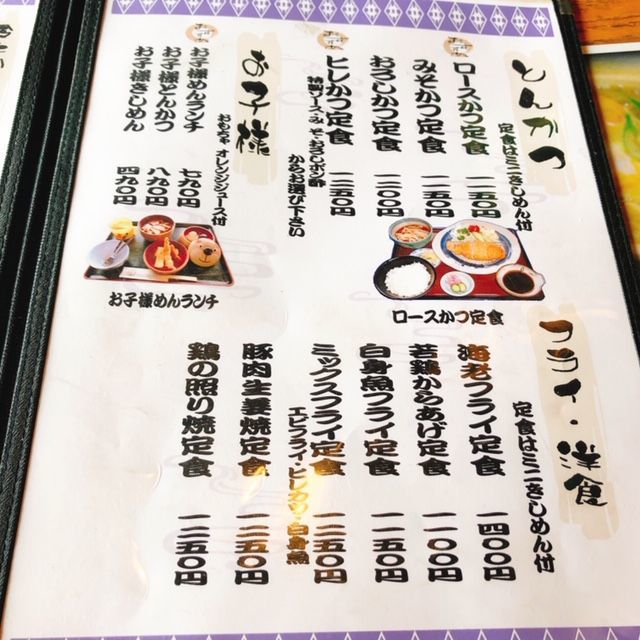 とんかつ
定食はミニきしめん付
ロースかつ定食
みそかつ定食
おろしかつ定食
ヒレかつ定食
特製ソース・みそ・おろしポン酢
からお選び下さい
ロースかつ定食
お子様
おもちゃ オレンジジュース付
お子様めんランチ 七九〇円
お子様とんかつ 八九〇円
お子様きしめん 四九〇円
お子様めんランチ
フライ・洋食
定食はミニきしめん付
海老フライ定食 一四〇〇円
若鶏からあげ定食 一一〇〇円
白身魚フライ定食 一一五〇円
ミックスフライ定食 一二五〇円
エビフライ・ヒレカツ・白身魚
豚肉生姜焼定食 一二五〇円
鶏の照り焼定食 一二五〇円